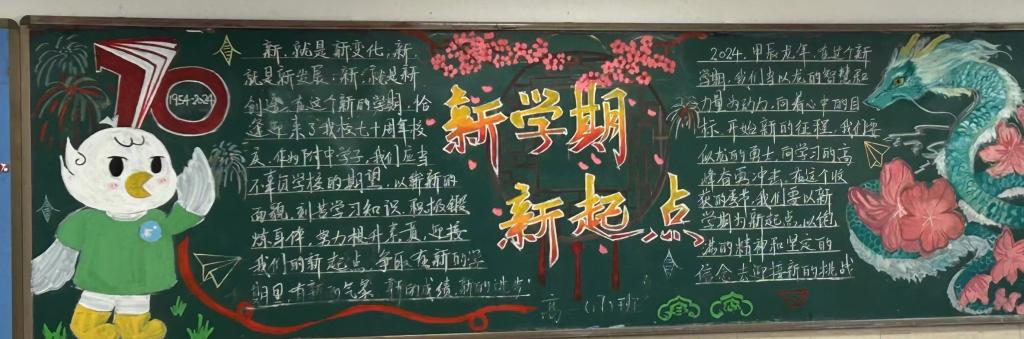 70
1954-2024
新,就是新变化,新
就是新发展,新,就是新
创造。在这个新的学期,恰
逢迎来了我校七十周年校
庆,作为附中学子,我们应当
不辜负学校的期望,以崭新的
面貌,刻苦学习知识,积极锻
炼身体,努力提升素质,迎接
我们的新起点,争取在新的学
期里有新的气象,新的成绩,新的进步
新学期
新起点
高一(7)班
2024,甲辰龙年,在这个新
学期,我们当以龙的智慧和
力量为动力,向着心中的目
标,开始新的征程,我们要
似龙的勇士,向学习的高
峰奋勇冲击,在这个收
获的季节,我们要以新
学期为新起点,以饱
满的精神和坚定的
信念去迎接新的挑战